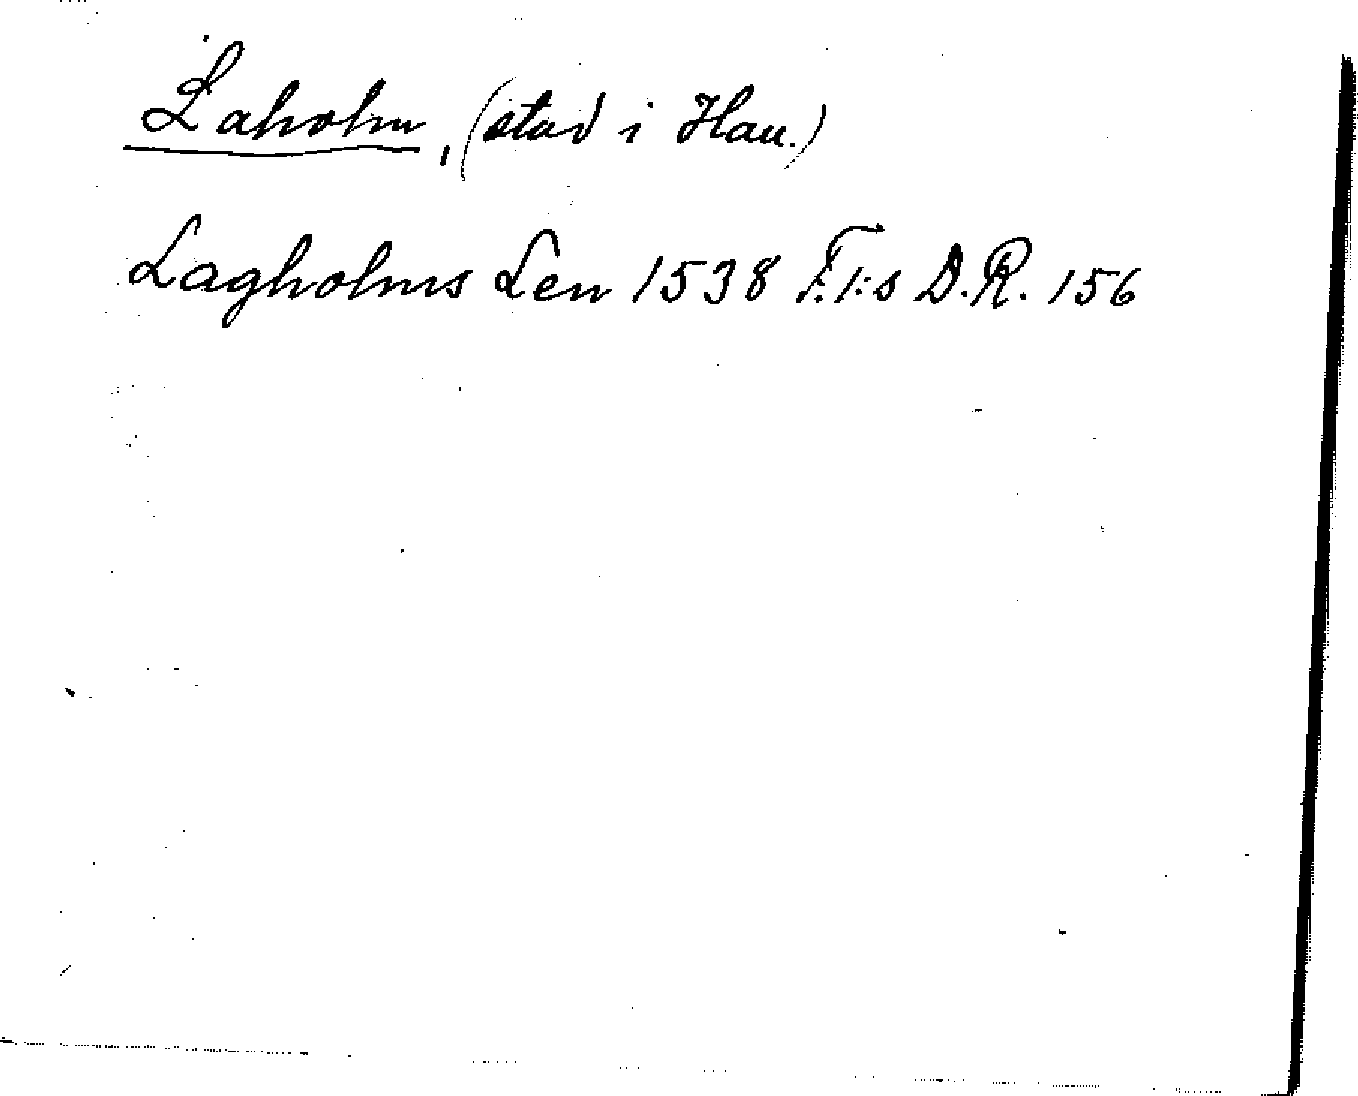 Laholm, (stad i Hall.)
Lagholms Len 1538 F.I:s D.R. 156